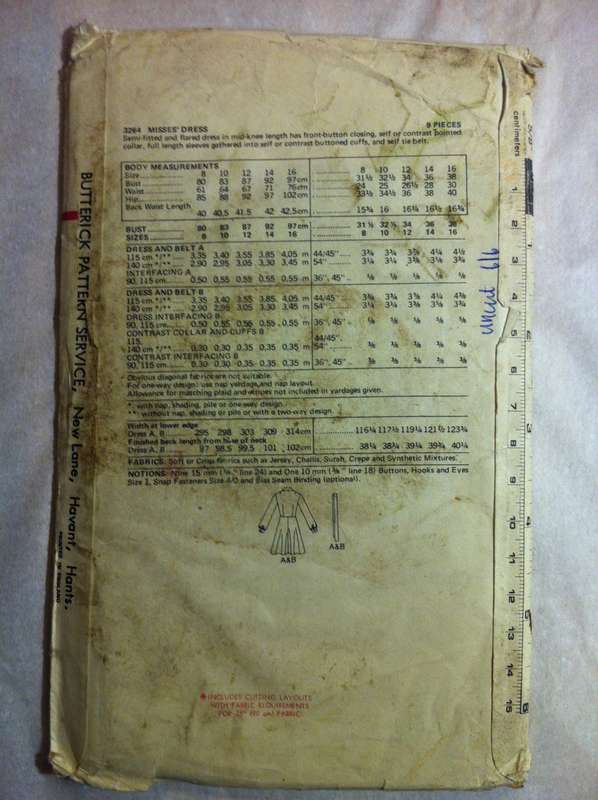 3264 MISSES' DRESS 9 PIECES
Semi-fitted and flared dress in mid-knee length has front-button closing, self or contrast pointed
collar, full length sleeves gathered into self or contrast buttoned cuffs, and self tie belt.
BODY MEASUREMENTS
Size 8 10 12 14 16 8 10 12 14 16
Bust 80 83 87 92 97cm 31½ 32½ 34 36 38
Waist 61 64 67 71 76cm 24 25 26½ 28 30
Hip 85 88 92 97 102cm 33½ 34½ 36 38 40
Back Waist Length
40 40.5 41.5 42 42.5cm 15¾ 16 16¼ 16½ 16¾
BUST 80 83 87 92 97cm 31½ 32½ 34 36 38
SIZES 8 10 12 14 16 8 10 12 14 16
DRESS AND BELT A
115 cm */** 3.35 3.40 3.55 3.85 4.05 m 44/45"
140 cm */** 2.90 2.95 3.05 3.30 3.45 m 54"
INTERFACING A
90, 115cm 0.50 0.55 0.55 0.55 0.55 m 36", 45"
DRESS AND BELT B
115 cm */** 3.35 3.40 3.55 3.85 4.05 m 44/45"
140 cm */** 2.90 2.95 3.05 3.30 3.45 m 54"
DRESS INTERFACING B
90, 115cm 0.50 0.55 0.55 0.55 0.55 m 36", 45"
CONTRAST COLLAR AND CUFFS B
115, 44/45",
140 cm */** 0.30 0.30 0.35 0.35 0.35 m 54"
CONTRAST INTERFACING B
90, 115cm 0.30 0.30 0.35 0.35 0.35 m 36", 45"
Obvious diagonal fabrics are not suitable.
For one-way design: use nap yardage and nap layout.
Allowance for matching plaid and stripes not included in yardages given.
*: with nap, shading, pile or one-way design.
**: without nap, shading or pile or with a two-way design.
Width at lower edge
Dress A, B 295 298 303 309 314cm 116¼ 117¼ 119¼ 121½ 123¾
Finished back length from base of neck
Dress A, B 97 98.5 99.5 101 102cm 38¼ 38¾ 39¼ 39¾ 40¼
FABRICS: Soft or Crisp fabrics such as Jersey, Challis, Surah, Crepe and Synthetic Mixtures.
NOTIONS: Nine 15 mm (⅝" line 24) and One 10 mm (⅜" line 18) Buttons, Hooks and Eyes
Size 2, Snap Fasteners Size 4/0 and Bias Seam Binding (optional).
A&B
A&B
INCLUDES CUTTING LAYOUTS
WITH FABRIC REQUIREMENTS
FOR (90 cm) FABRIC
BUTTERICK PATTERN SERVICE, New Lane, Havant, Hants.
PRINTED IN ENGLAND
centimeters
1 2 3 4 5 6 7 8 9 10 11 12 13 14 15